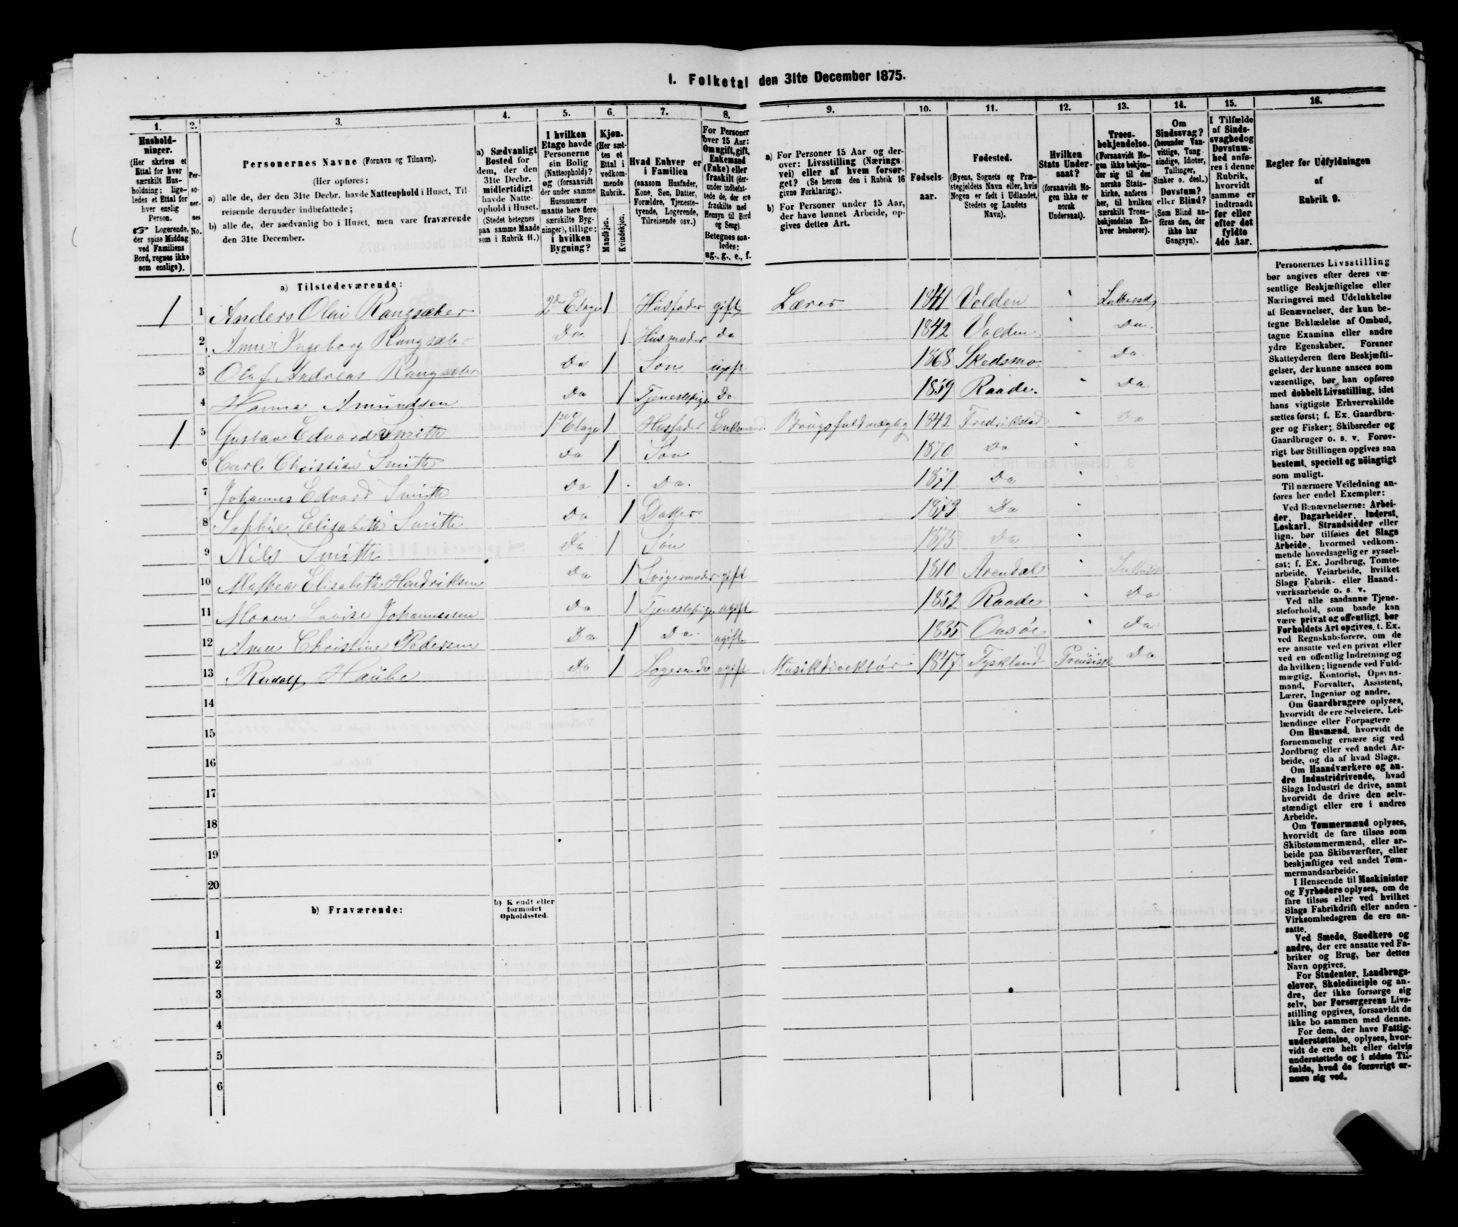 1. Folketal den 31te December 1875.
1. 2. 3. 4. 5. 6. 7. 8. 9. 10. 11. 12. 13. 14. 15. 16.
Husholdninger.
(Her skrives et Ettal for hver særskilt Husholdning; ligeledes et Ettal for hver enslig Person.
Logerende, der spise Middag ved Familiens Bord, regnes ikke som enslige).
Personernes No.
Personernes Navne (Fornavn og Tilnavn).
(Her opføres:
a) alle de, der den 31te Decbr. havde Natteophold i Huset, Tilreisende derunder indbefattede;
b) alle de, der sædvanlig bo i Huset, men vare fraværende den 31te December.
a) Sædvanligt Bosted for dem, der den 31te Decbr. midlertidigt havde Natteophold i Huset. (Stedet betegnes paa samme Maade som i Rubrik 11.)
I hvilken Etage havde Personerne sin Bolig (Natteophold)? og (forsaavidt der under samme Husnummer maatte høre flere særskilte Bygninger), tillige: i hvilken Bygning?
Kjøn. (Her sættes et Ettal i vedkommende Rubrik.
Mandkjøn. Kvindekjøn.
Hvad Enhver er i Familien
(saasom Husfader, Kone, Søn, Datter, Forældre, Tjenestetyende, Logerende, Tilreisende osv.)
For Personer over 15 Aar: Om ugift, gift, Enkemand (Enke) eller fraskilt (derunder indbefattede de, der ere fraskilte med Hensyn til Bord og Seng).
Betegnes saaledes: ug., g., e., f.
a) For Personer 15 Aar og derover: Livsstilling (Næringsvei) eller af hvem forsørget? (Se herom den i Rubrik 16 givne Forklaring).
b) For Personer under 15 Aar, der have lønnet Arbeide, opgives dettes Art.
Fødselsaar.
Fødested.
(Byens, Sognets og Præstegjeldets Navn eller, hvis Nogen er født i Udlandet, Stedets og Landets Navn).
Hvilken Stats Undersaat?
(forsaavidt Nogen ikke er norsk Undersaat).
Troesbekjendelse.
(Forsaavidt Nogen ikke bekjender sig til den norske Statskirke, anføres her, til hvilken særskilt Troesbekjendelse Enhver henhører).
Om Sindssvag? (herunder Vanvittige, Tungsindige, Idioter, Tullinger, Sinker o. desl.) Døvstum? eller Blind? (Som Blind anføres den, der ikke har Gangsyn).
I Tilfælde af Sindssvaghed og Døvstumhed anføres i denne Rubrik, hvorvidt samme er indtraadt før eller efter det fyldte 4de Aar.
Regler for Udfyldningen af Rubrik 9.
a) Tilstedeværende:
1 1 Anders Olai Rangsæter 2den Etage 1 Husfader gift Lærer 1841 Volden Luthersk
2 Anne Ingeborg Rangsæter Do 1 Husmoder Do 1842 Volden Do
3 Olaf Andreas Rangsæter Do 1 Søn ugift 1868 Skedsmo Do
4 Hanna Amundsen Do 1 Tjenestepige Do 1859 Raade. Do
1 5 Gustav Edvard Smith 1ste Etage 1 Husfader Enkemand Brugsfuldmægtig 1842 Fredrikstad Do
6 Carl Christian Smith Do 1 Søn 1870 Do
7 Johannes Edvard Smith Do 1 Do. 1871 Do
8 Sophie Elisabeth Smith Do 1 Datter 1873 Do
9 Nils Smith Do 1 Søn 1875 Do
10 Elisabeth Hendriksen Do 1 Svigermoder gift 1810 Arendal
11 Maren Lovise Johannessen Do 1 Tjenestepige ugift 1852 Raade Do
12 Anne Christine Pedersen Do 1 Do. ugift 1835 Onsøe Do
13 Haube Do 1 Logerende ugift Musikdirektør 1847 Tyskland Preusisk Do
14
15
16
17
18
19
20
b) Fraværende:
b) Kjendt eller formodet Opholdssted.
1
2
3
4
5
6
Personernes Livsstilling bør angives efter deres væsentlige Beskjæftigelse eller Næringsvei med Udelukkelse af Benævnelser, der kun betegne Beklædelse af Ombud, tagne Examina eller andre ydre Egenskaber. Forener Skatteyderen flere Beskjæftigelser, der kunne ansees som væsentlige, bør han opføres med dobbelt Livsstilling, idet hans vigtigste Erhvervskilde sættes først; f. Ex. Gaardbruger og Fisker; Skibsreder og Gaardbruger o. s. v. Forøvrigt bør Stillingen opgives saa bestemt, specielt og nøiagtigt som muligt.
Til nærmere Veiledning anføres her endel Exempler:
Ved Benævnelserne: Arbeider, Dagarbeider, Inderst, Løskarl, Strandsidder eller lign. bør tilføies det Slags Arbeide, hvormed vedkommende hovedsagelig er sysselsat: f. Ex. Jordbrug, Tomtearbeide, Veiarbeide, hvilket Slags Fabrik- eller Haandværksarbeide o. s. v.
Ved alle saadanne Tjenesteforhold, som baade kan være privat og offentligt, bør Forholdets Art opgives, t. Ex. ved Regnskabsførere, om de ere ansatte ved en privat eller ved en offentlig Indretning og da hvilken; lignende ved Fuldmægtig, Kontorist, Opsynsmand, Forvalter, Assistent, Lærer, Ingeniør og andre.
Om Gaardbrugere oplyses, hvorvidt de ere Selveiere, Leilændinge eller Forpagtere
Om Husmænd, hvorvidt de fornemmelig ernære sig ved Jordbrug eller ved andet Arbeide, og da af hvad Slags.
Om Haandværkere og andre Industridrivende, hvad Slags Industri de drive, samt hvorvidt de drive den selvstændigt eller ere i andres Arbeide.
Om Tømmermænd oplyses, hvorvidt de fare tilsøs som Skibstømmermænd, eller arbeide paa Skibsværfter, eller beskjæftiges ved andet Tømmermandsarbeide.
I Henseende til Maskinister og Fyrbødere oplyses, om de fare tilsøs eller ved hvilket Slags Fabrikdrift eller anden Virksomhedsgren de ere ansatte.
Ved Smede, Snedkere og andre, der ere ansatte ved Fabriker og Brug, bør dettes Navn opgives.
For Studenter, Landbrugselever, Skoledisciple og andre, der ikke forsørge sig selv, bør Forsørgerens Livsstilling opgives, forsaavidt de ikke bo sammen med denne.
For dem, der have Fattigunderstøttelse, oplyses, hvorvidt de ere helt eller delvis understøttede og i sidste Tilfælde, hvad de forøvrigt ernære sig ved.